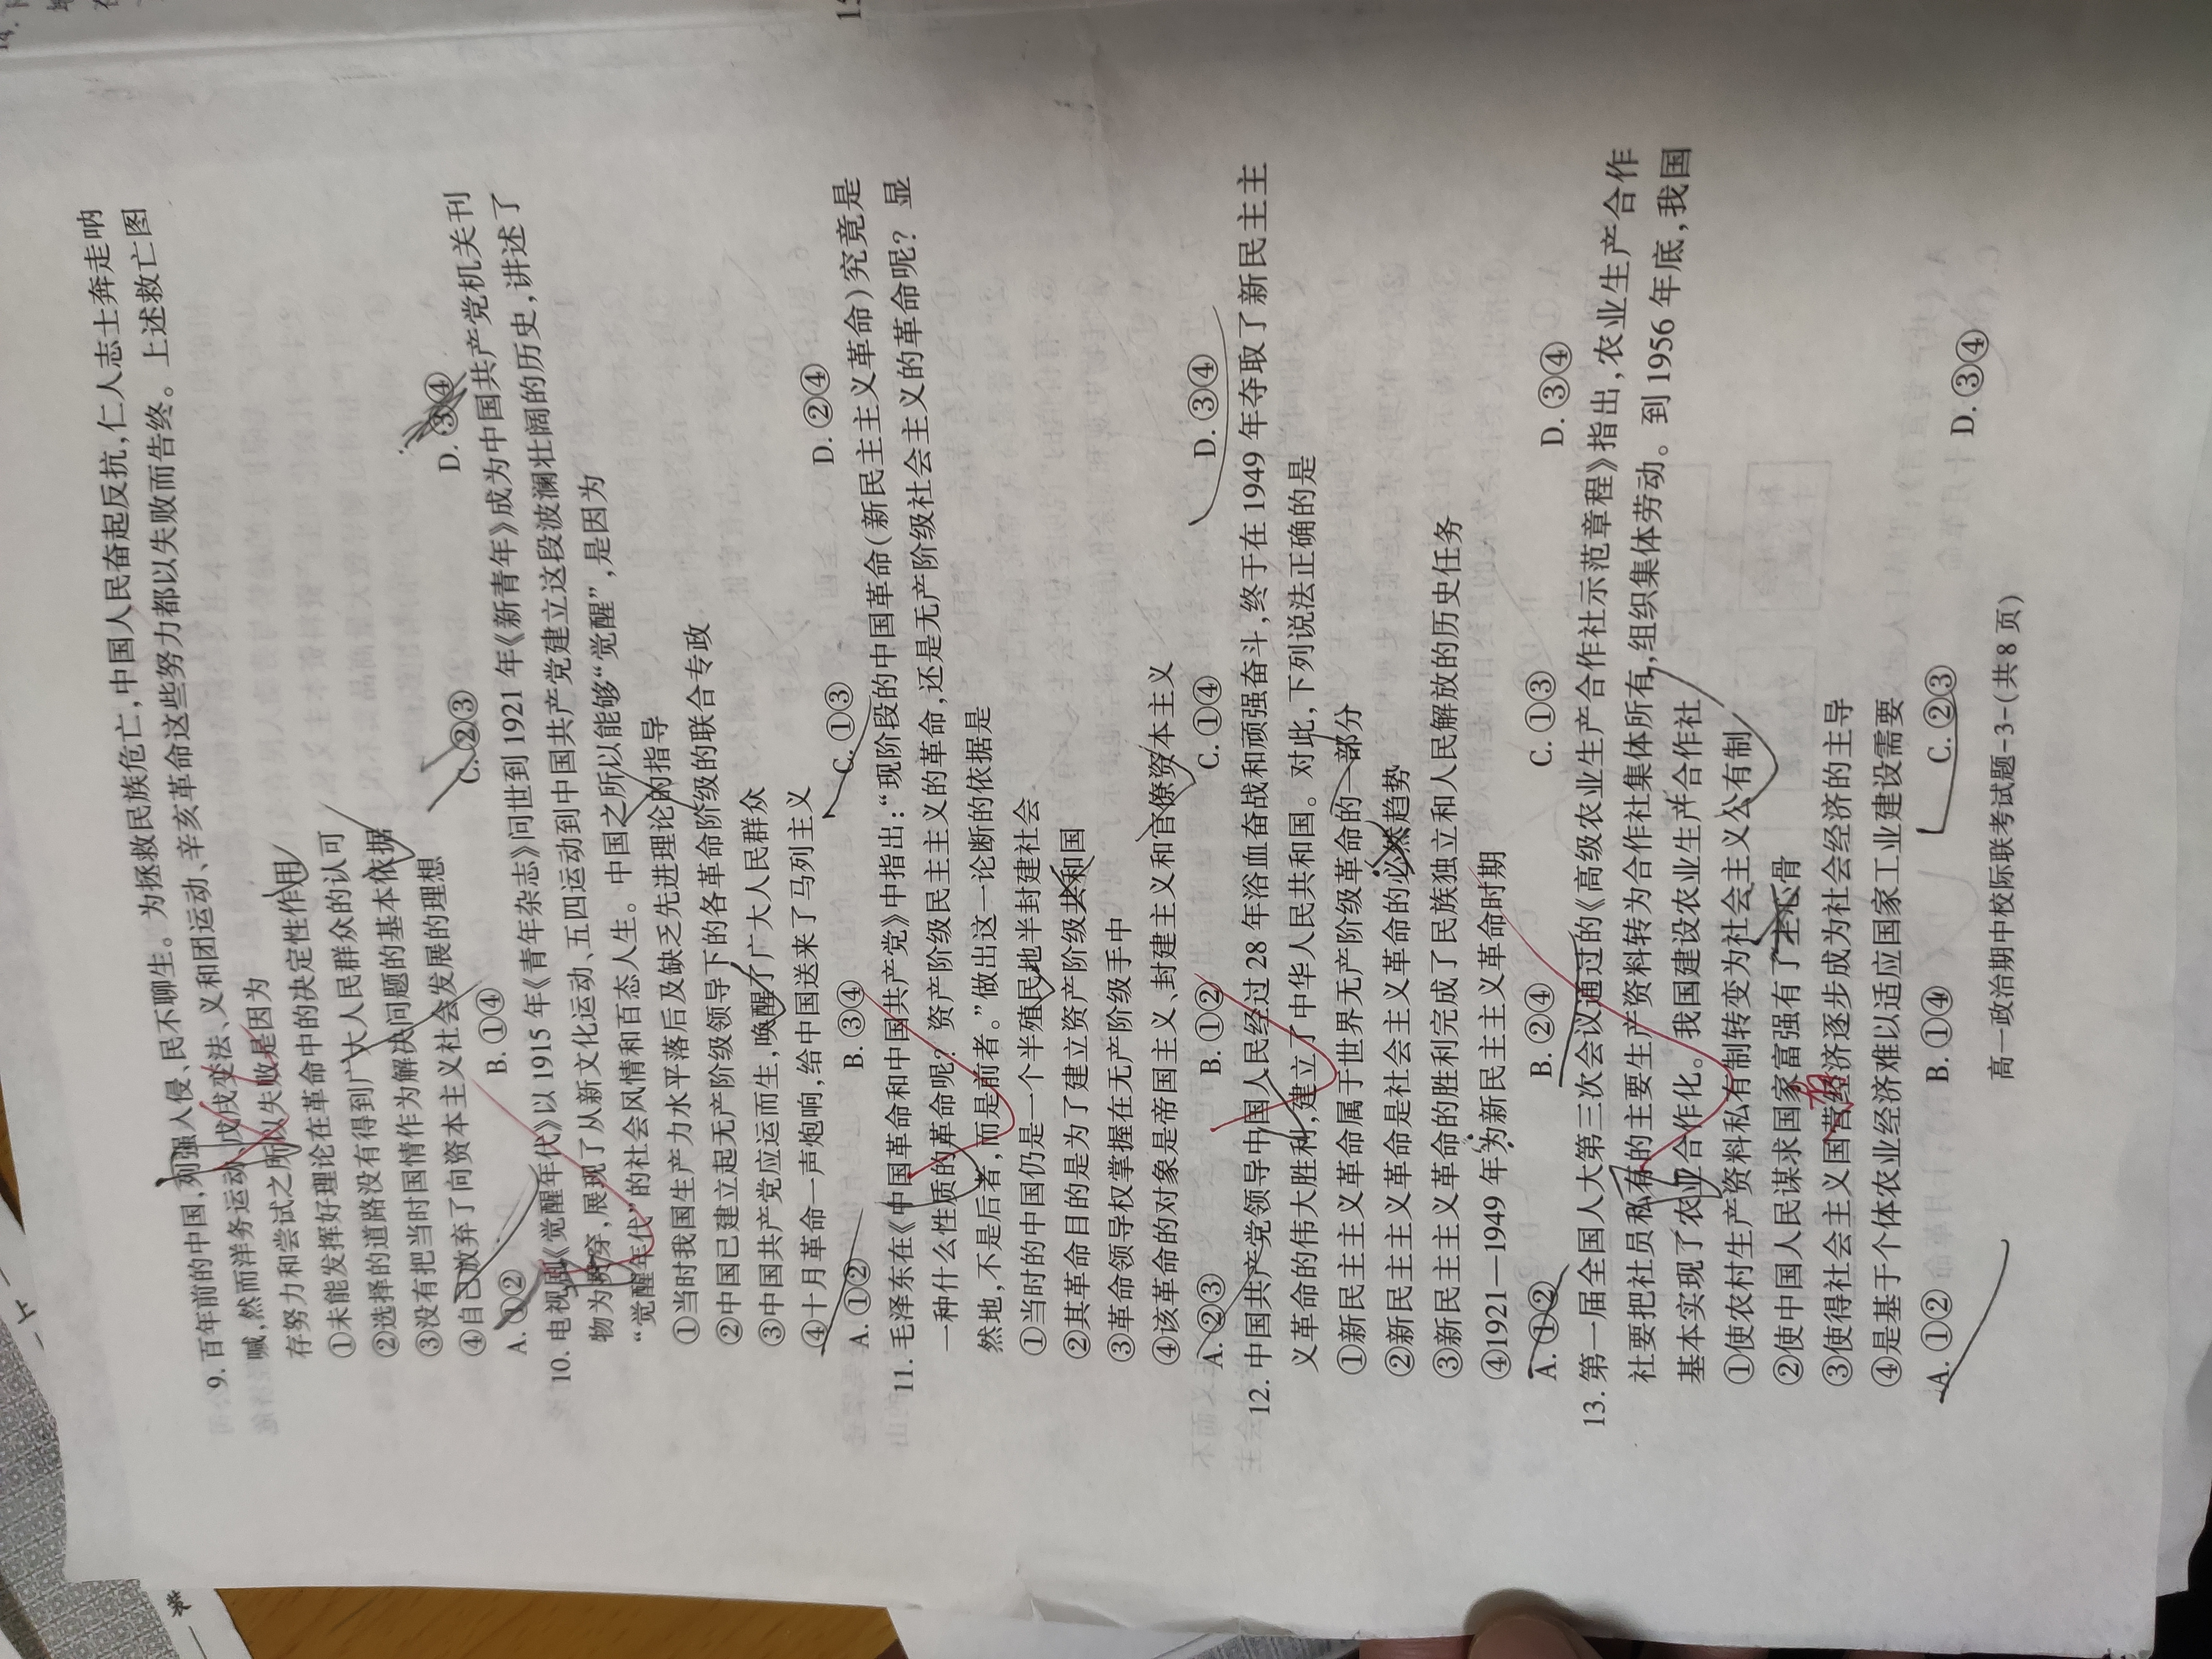 9. 百年前的中国,列强入侵、民不聊生。为拯救民族危亡,中国人民奋起反抗,仁人志士奔走呐
喊,然而洋务运动、戊戌变法、义和团运动、辛亥革命这些努力都以失败而告终。上述救亡图
存努力和尝试之所以失败是因为
①未能发挥好理论在革命中的决定性作用
②选择的道路没有得到广大人民群众的认可
③没有把当时国情作为解决问题的基本依据
④自己放弃了向资本主义社会发展的理想
A. ①② B. ①④ C. ②③ D. ③④
10. 电视剧《觉醒年代》以 1915 年《青年杂志》问世到 1921 年《新青年》成为中国共产党机关刊
物为贯穿,展现了从新文化运动、五四运动到中国共产党建立这段波澜壮阔的历史,讲述了
“觉醒年代”的社会风情和百态人生。中国之所以能够“觉醒”,是因为
①当时我国生产力水平落后及缺乏先进理论的指导
②中国已建立起无产阶级领导下的各革命阶级的联合专政
③中国共产党应运而生,唤醒了广大人民群众
④十月革命一声炮响,给中国送来了马列主义
A. ①② B. ③④ C. ①③ D. ②④
11. 毛泽东在《中国革命和中国共产党》中指出:“现阶段的中国革命(新民主主义革命)究竟是
一种什么性质的革命呢? 资产阶级民主主义的革命,还是无产阶级社会主义的革命呢? 显
然地,不是后者,而是前者。”做出这一论断的依据是
①当时的中国仍是一个半殖民地半封建社会
②其革命目的是为了建立资产阶级共和国
③革命领导权掌握在无产阶级手中
④该革命的对象是帝国主义、封建主义和官僚资本主义
A. ②③ B. ①② C. ①④ D. ③④
12. 中国共产党领导中国人民经过 28 年浴血奋战和顽强奋斗,终于在 1949 年夺取了新民主主
义革命的伟大胜利,建立了中华人民共和国。对此,下列说法正确的是
①新民主主义革命属于世界无产阶级革命的一部分
②新民主主义革命是社会主义革命的必然趋势
③新民主主义革命的胜利完成了民族独立和人民解放的历史任务
④1921—1949 年为新民主主义革命时期
A. ①② B. ②④ C. ①③ D. ③④
13. 第一届全国人大第三次会议通过的《高级农业生产合作社示范章程》指出,农业生产合作
社要把社员私有的主要生产资料转为合作社集体所有,组织集体劳动。到 1956 年底,我国
基本实现了农业合作化。我国建设农业生产合作社
①使农村生产资料私有制转变为社会主义公有制
②使中国人民谋求国家富强有了主心骨
③使得社会主义国营经济逐步成为社会经济的主导
④是基于个体农业经济难以适应国家工业建设需要
A. ①② B. ①④ C. ②③ D. ③④
高一政治期中校际联考试题-3-(共 8 页)